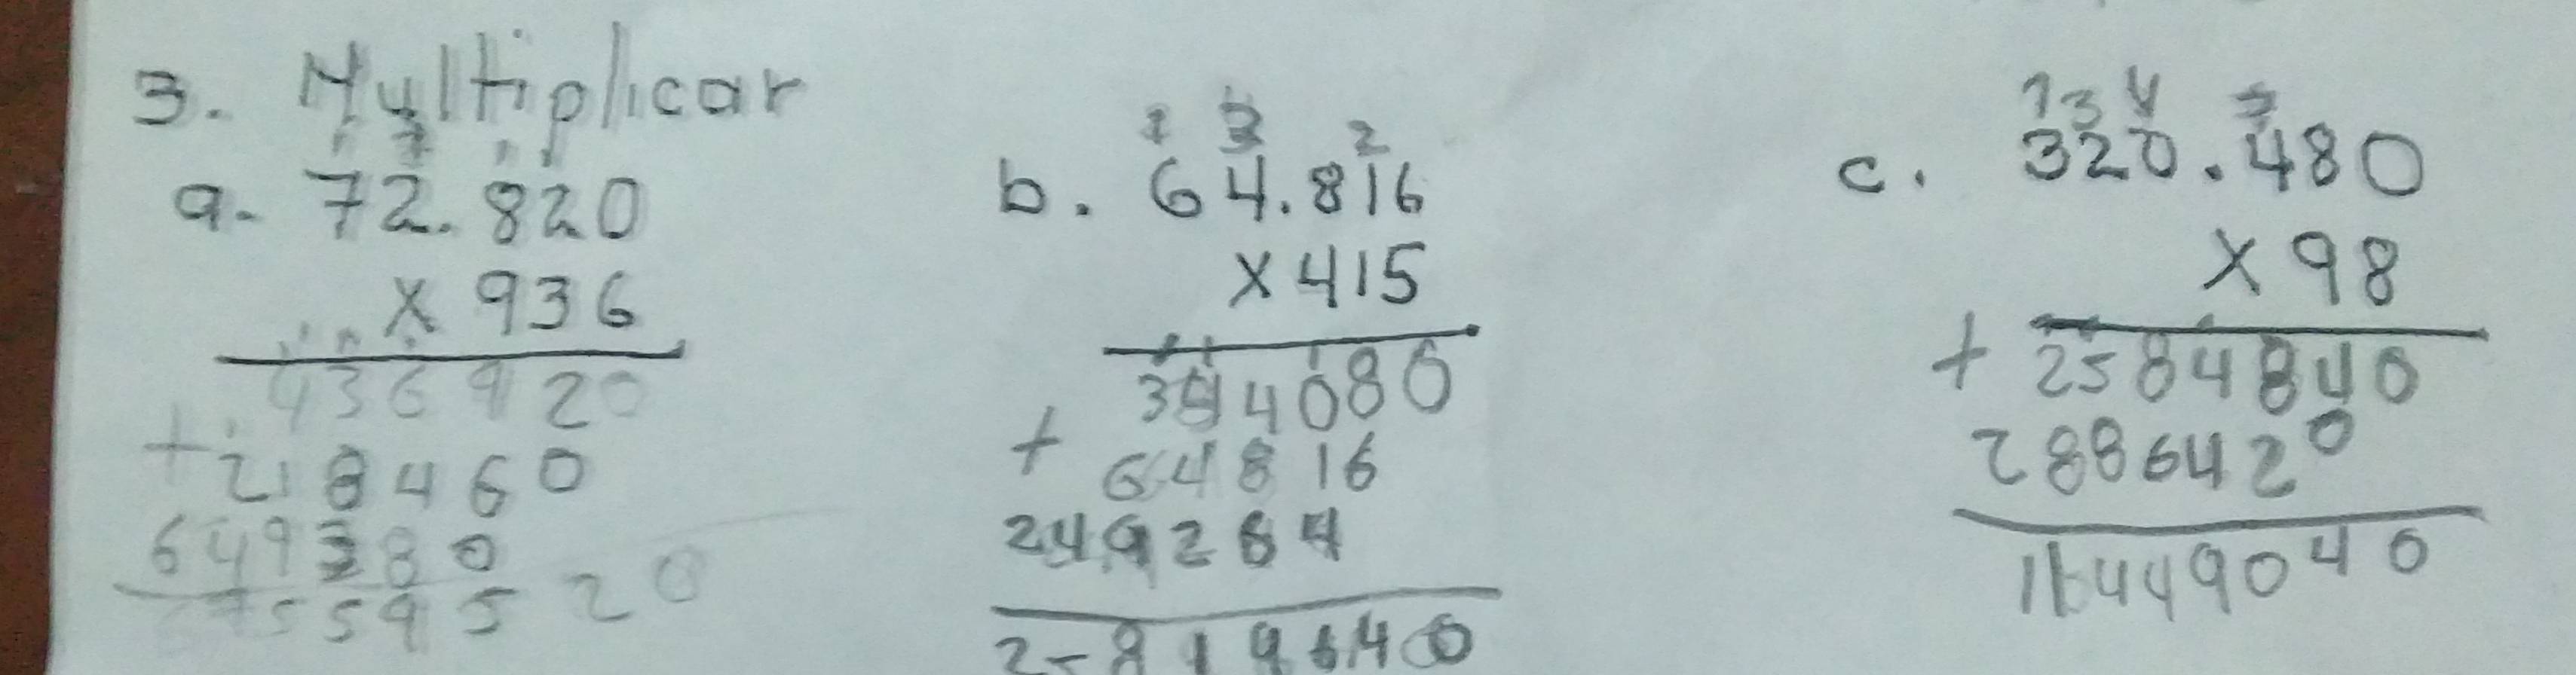 3. Multiplicar
a. 72.820
x 936
436920
+ 218460
649380
67559520
b. 64.816
x 415
344080
+ 64816
249264
2 8 19640
c. 320.480
x 98
+ 2584840
2886420
11449040